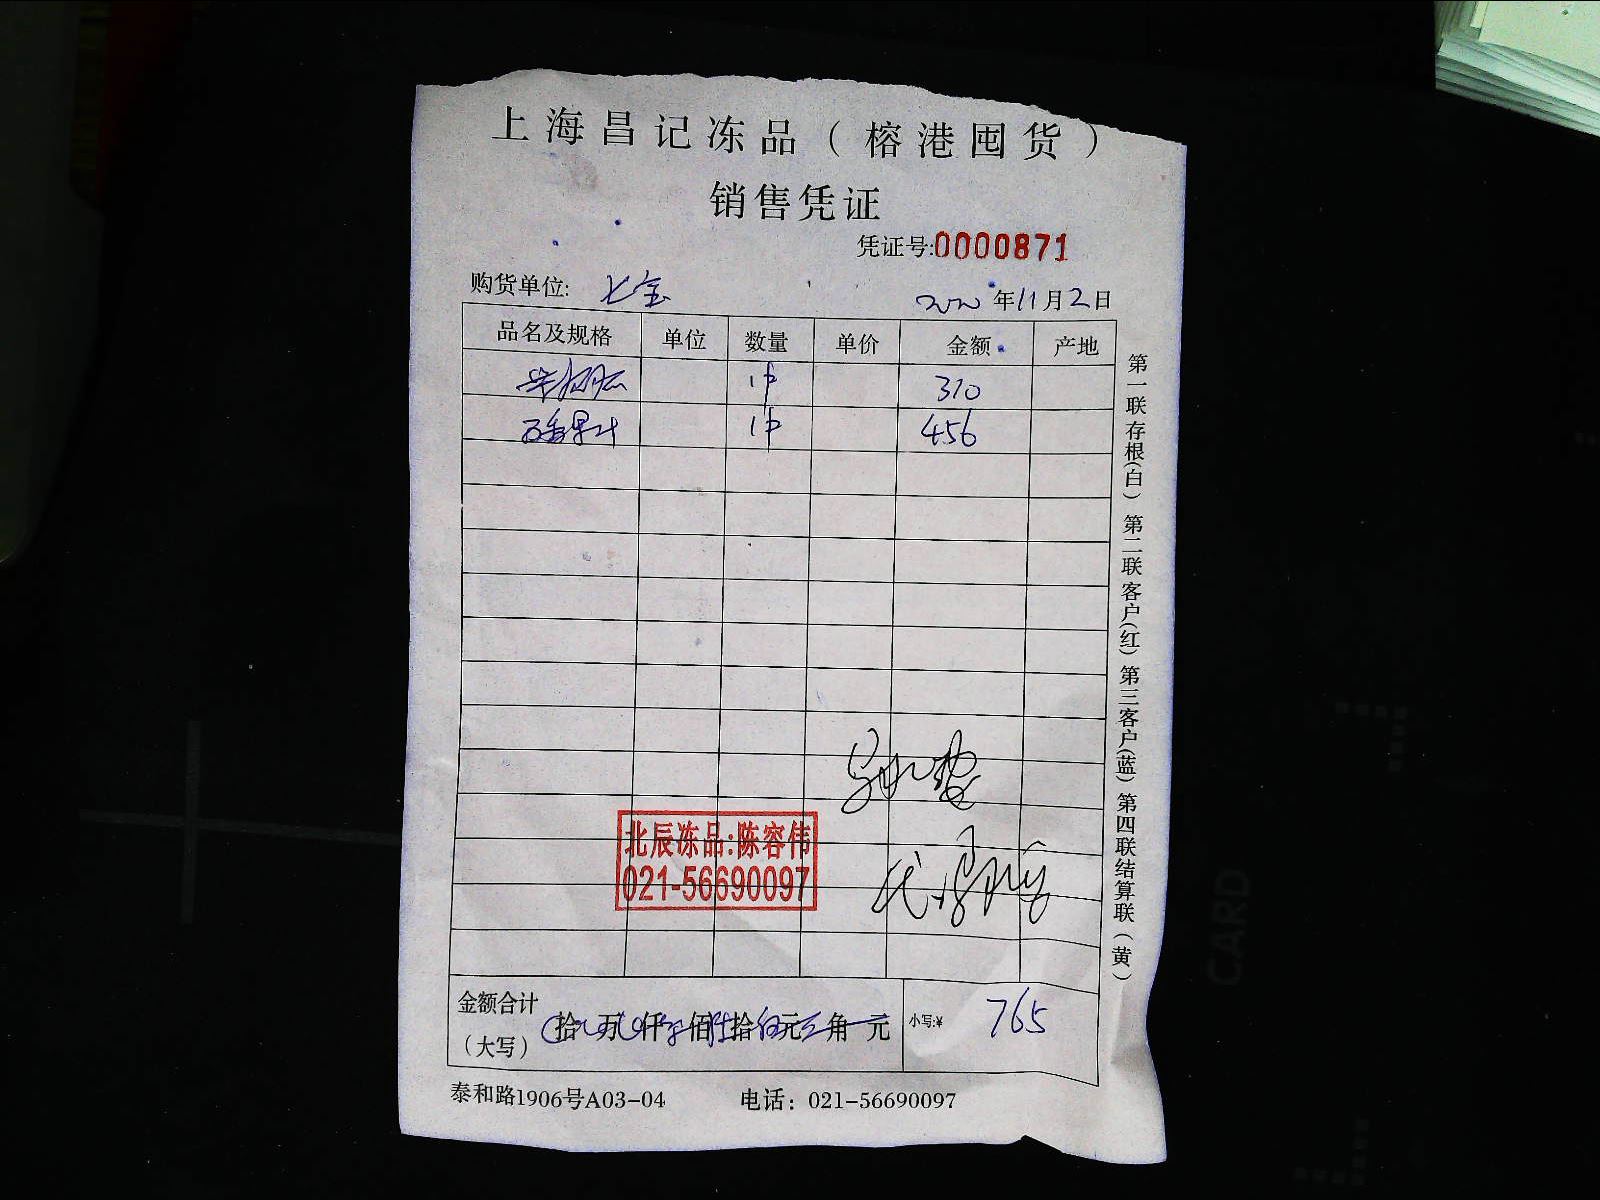 上海昌记冻品（榕港囤货）
销售凭证
凭证号:0000871
购货单位: 七宝
2020年11月2日
品名及规格 单位 数量 单价 金额 产地
1件 310
1件 456
北辰冻品:陈容伟
021-56690097
金额合计
（大写）
拾 万 仟 佰 拾 元 角 元
小写:¥ 765
泰和路1906号A03-04 电话：021-56690097
第一联存根(白) 第二联客户(红) 第三客户(蓝) 第四联结算联（黄）